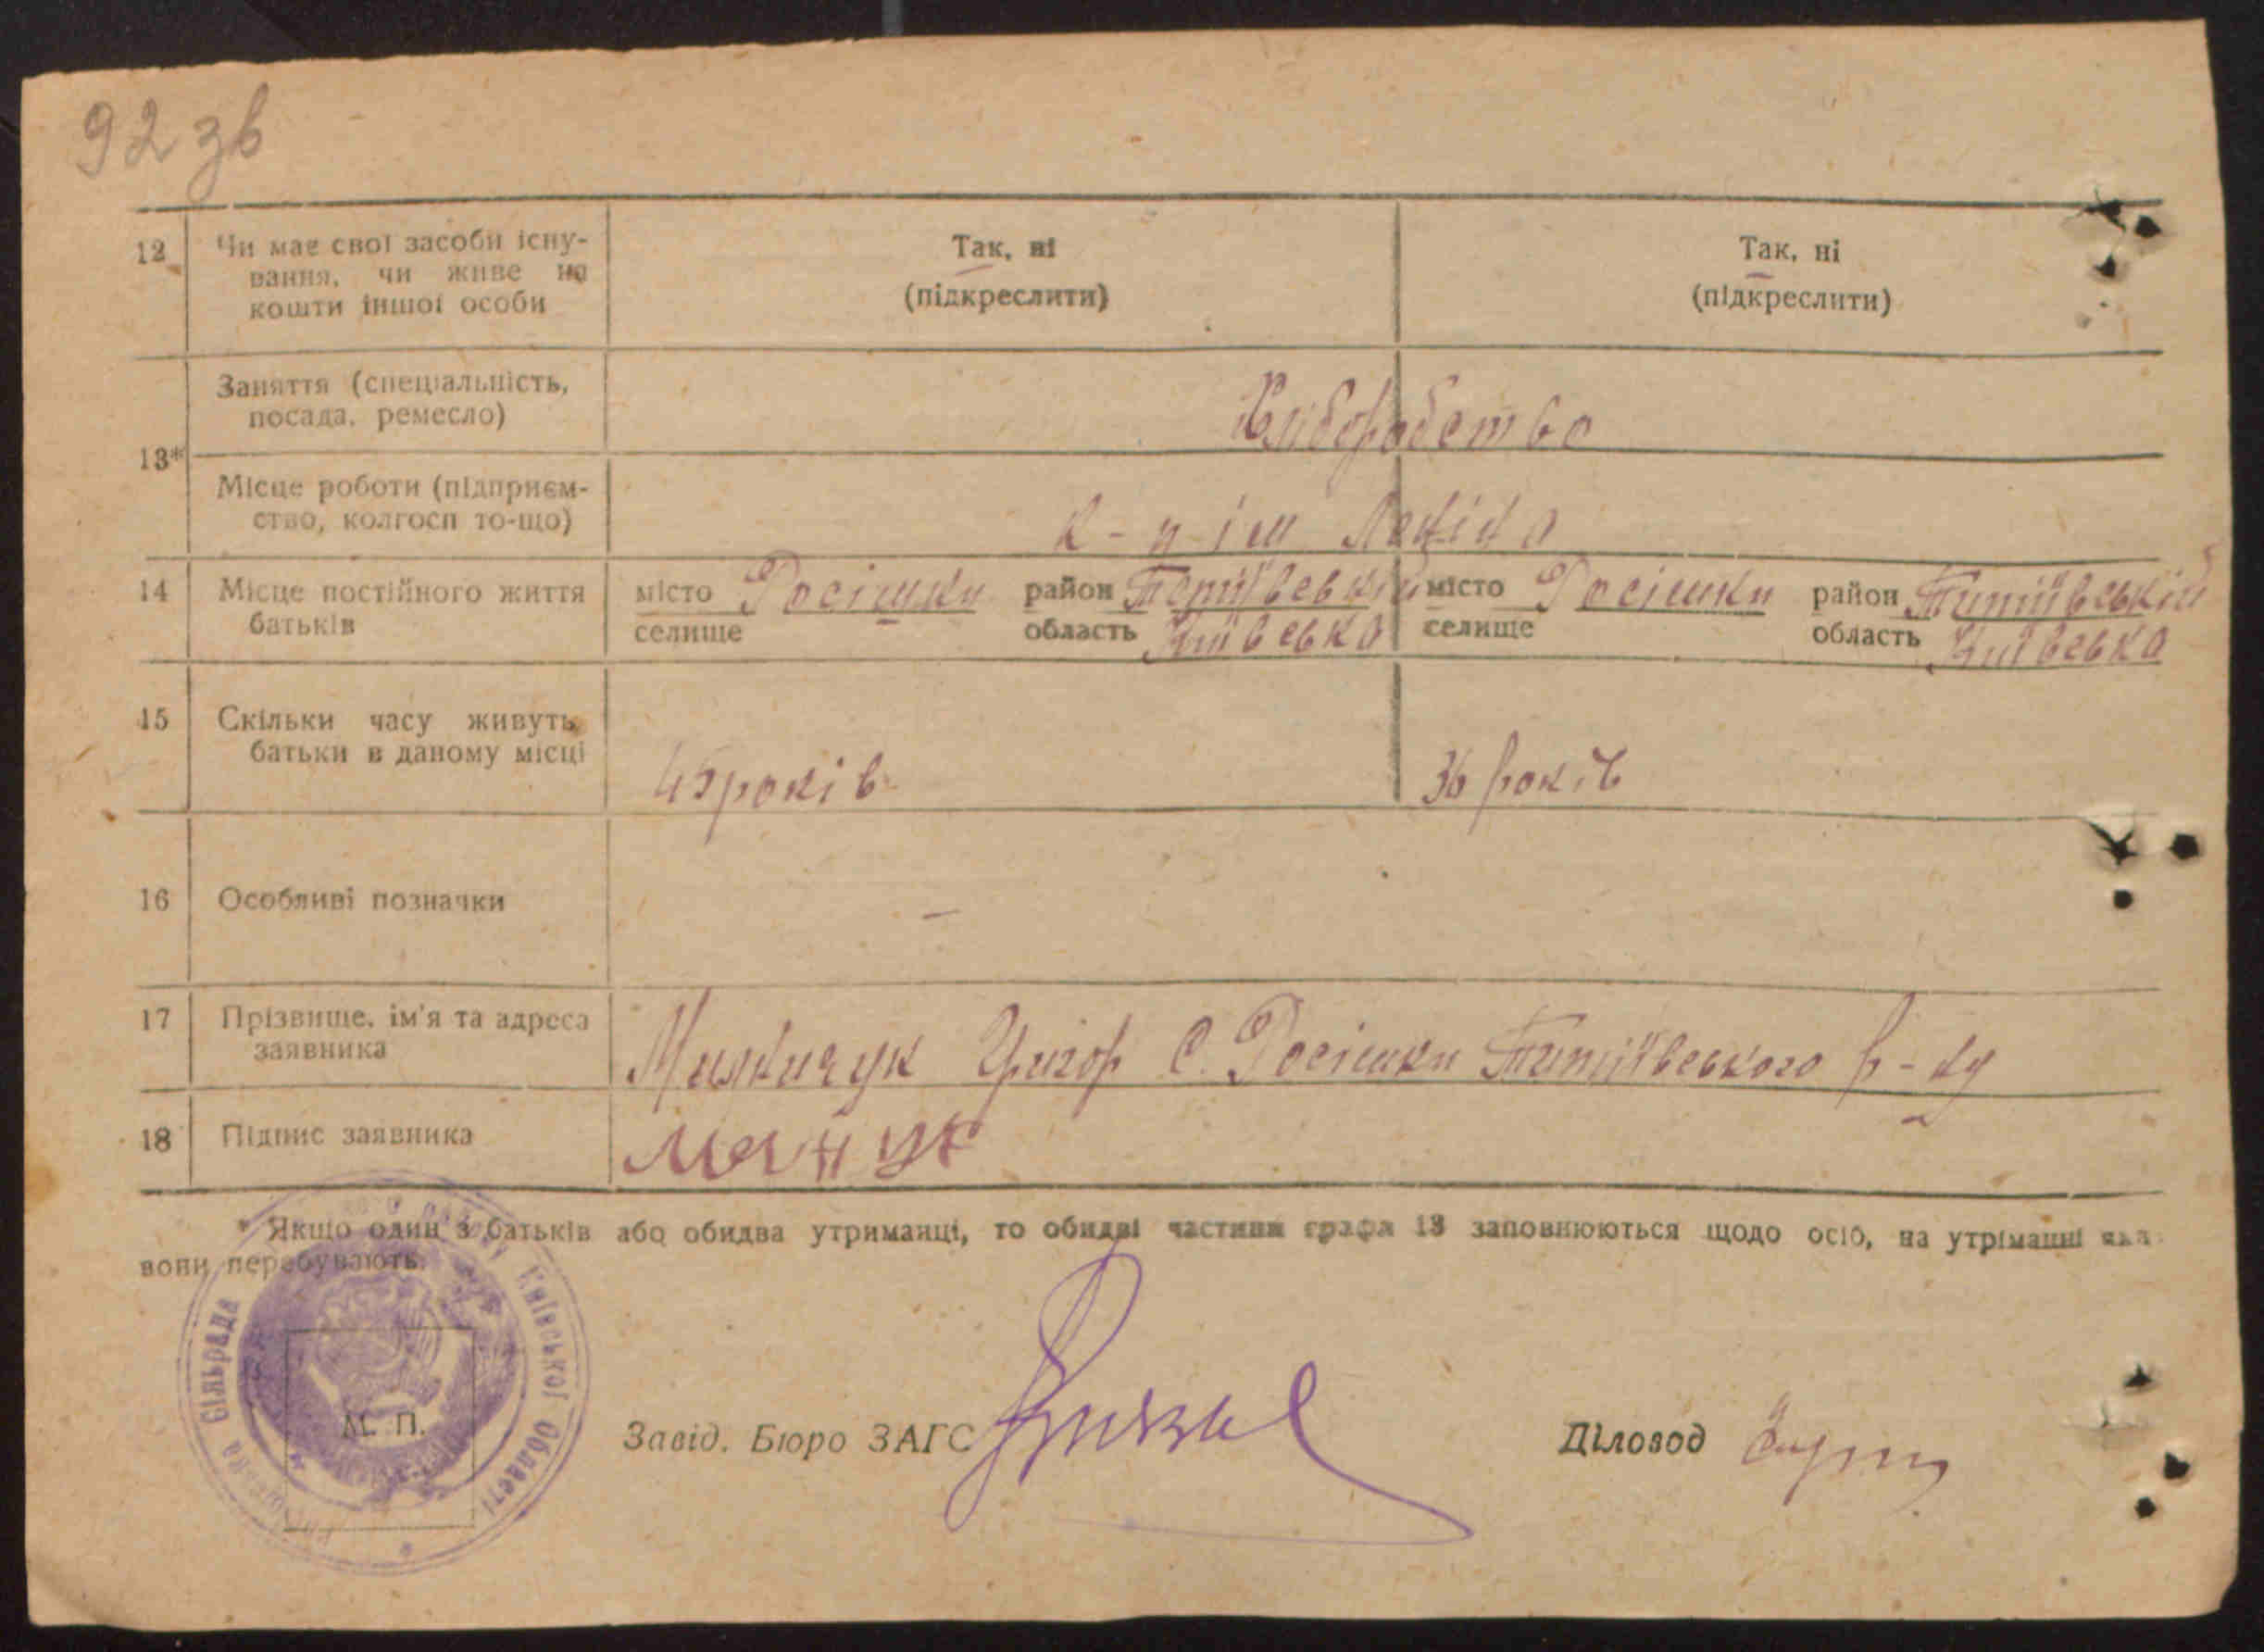 92 зв
12 Чи має свої засоби існу-
вання, чи живе на
кошти іншої особи
Так, ні
(підкреслити)
Так, ні
(підкреслити)
13*
Заняття (спеціальність,
посада, ремесло)
Хліборобство
Місце роботи (підприєм-
ство, колгосп то-що)
к-п ім Леніна
14 Місце постійного життя
батьків
місто Росішки район Тетіївський
селище область Київська
місто Росішки район Титіївський
селище область Київська
15 Скільки часу живуть
батьки в даному місці
45 років
36 років
16 Особливі позначки
—
17 Прізвище, ім'я та адреса
заявника
Григор С. Росішки Титіївського р-ну
18 Підпис заявника
* Якщо один з батьків або обидва утриманці, то обидві частини графи 13 заповнюються щодо осіб, на утріманні яка
вони перебувають.
Сільрада Київської Області
М. П.
Завід. Бюро ЗАГС
Діловод